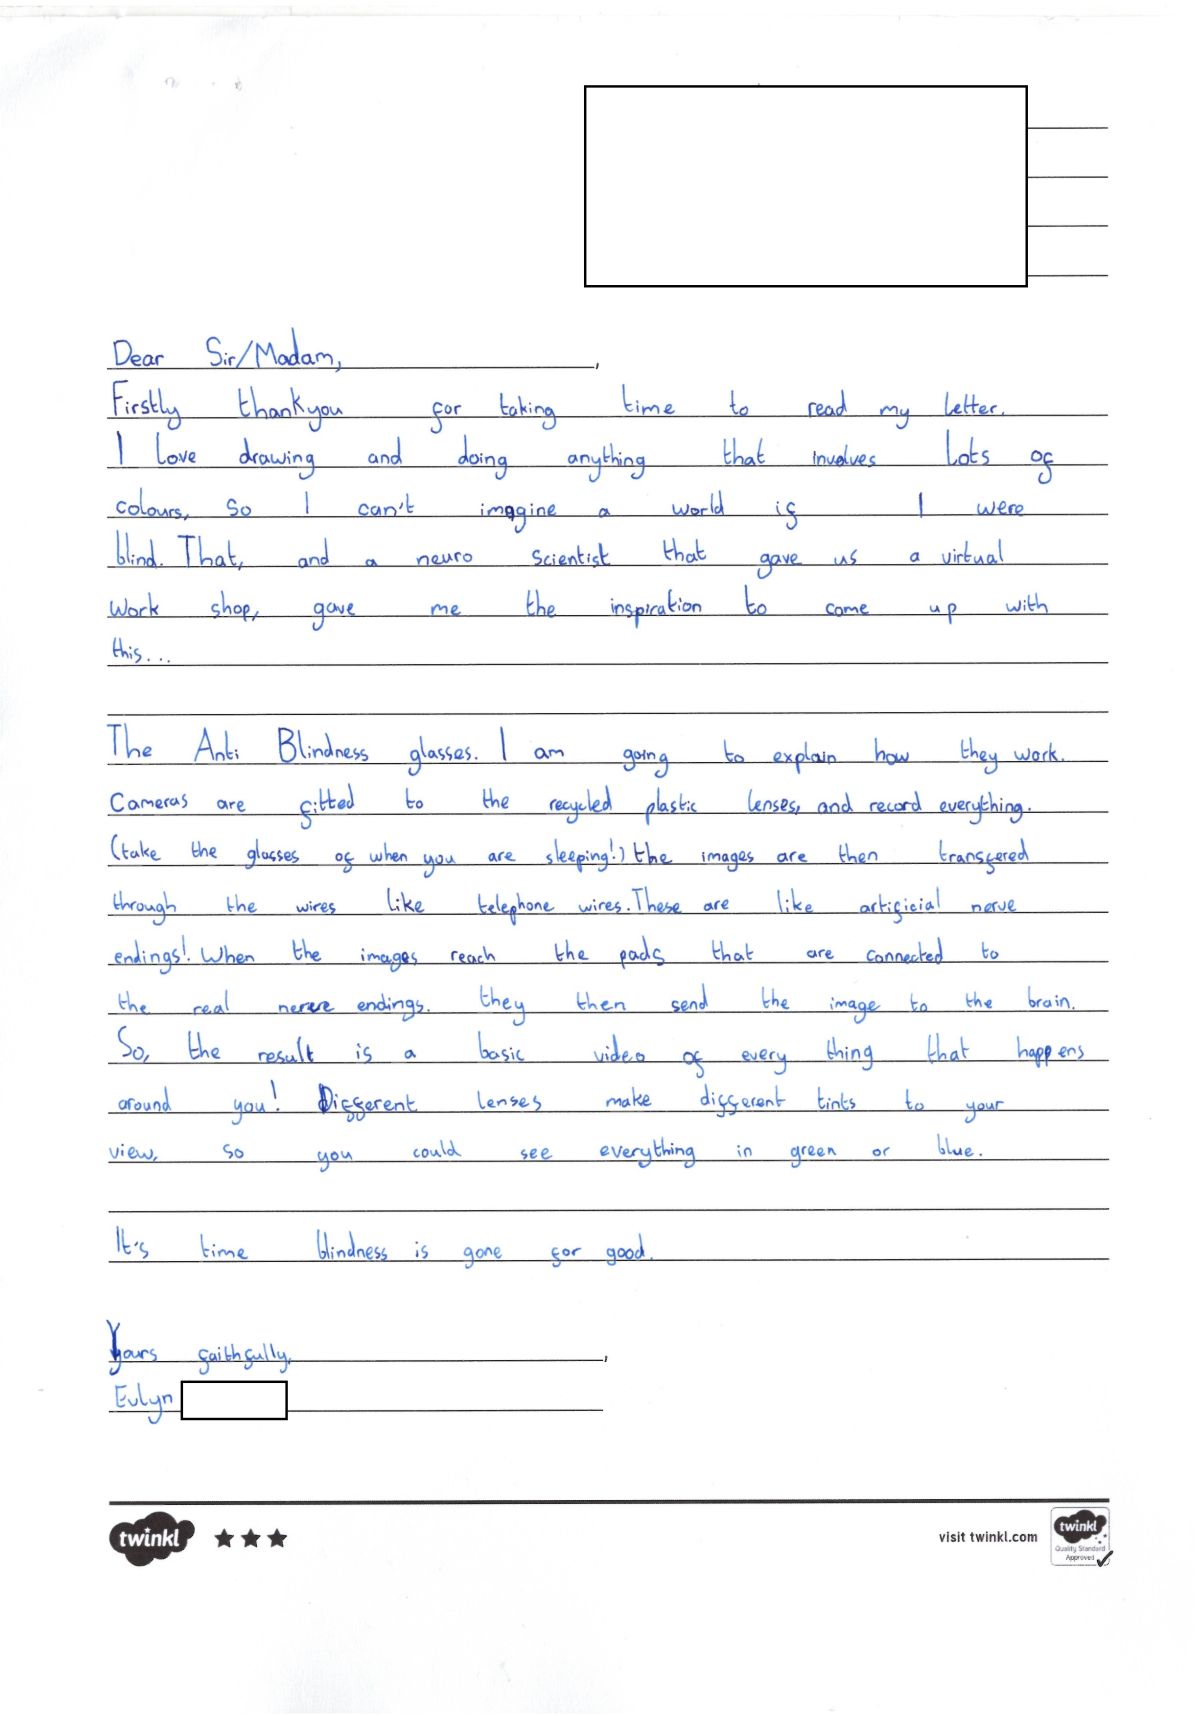 Dear Sir/Madam, ,
Firstly thankyou for taking time to read my letter.
I love drawing and doing anything that involves lots of
colours, so I can't imagine a world if I were
blind. That, and a neuro scientist that gave us a virtual
work shop, gave me the inspiration to come up with
this...
The Anti Blindness glasses. I am going to explain how they work.
Cameras are fitted to the recycled plastic lenses, and record everything.
(take the glasses of when you are sleeping!) the images are then transfered
through the wires like telephone wires. These are like artificial nerve
endings!. When the images reach the pads that are connected to
the real nerve endings. they then send the image to the brain.
So, the result is a basic video of every thing that happens
around you! Different lenses make different tints to your
view, so you could see everything in green or blue.
It's time blindness is gone for good.
Yours faithfully, ,
Evlyn
twinkl
visit twinkl.com
twinkl
Quality Standard
Approved